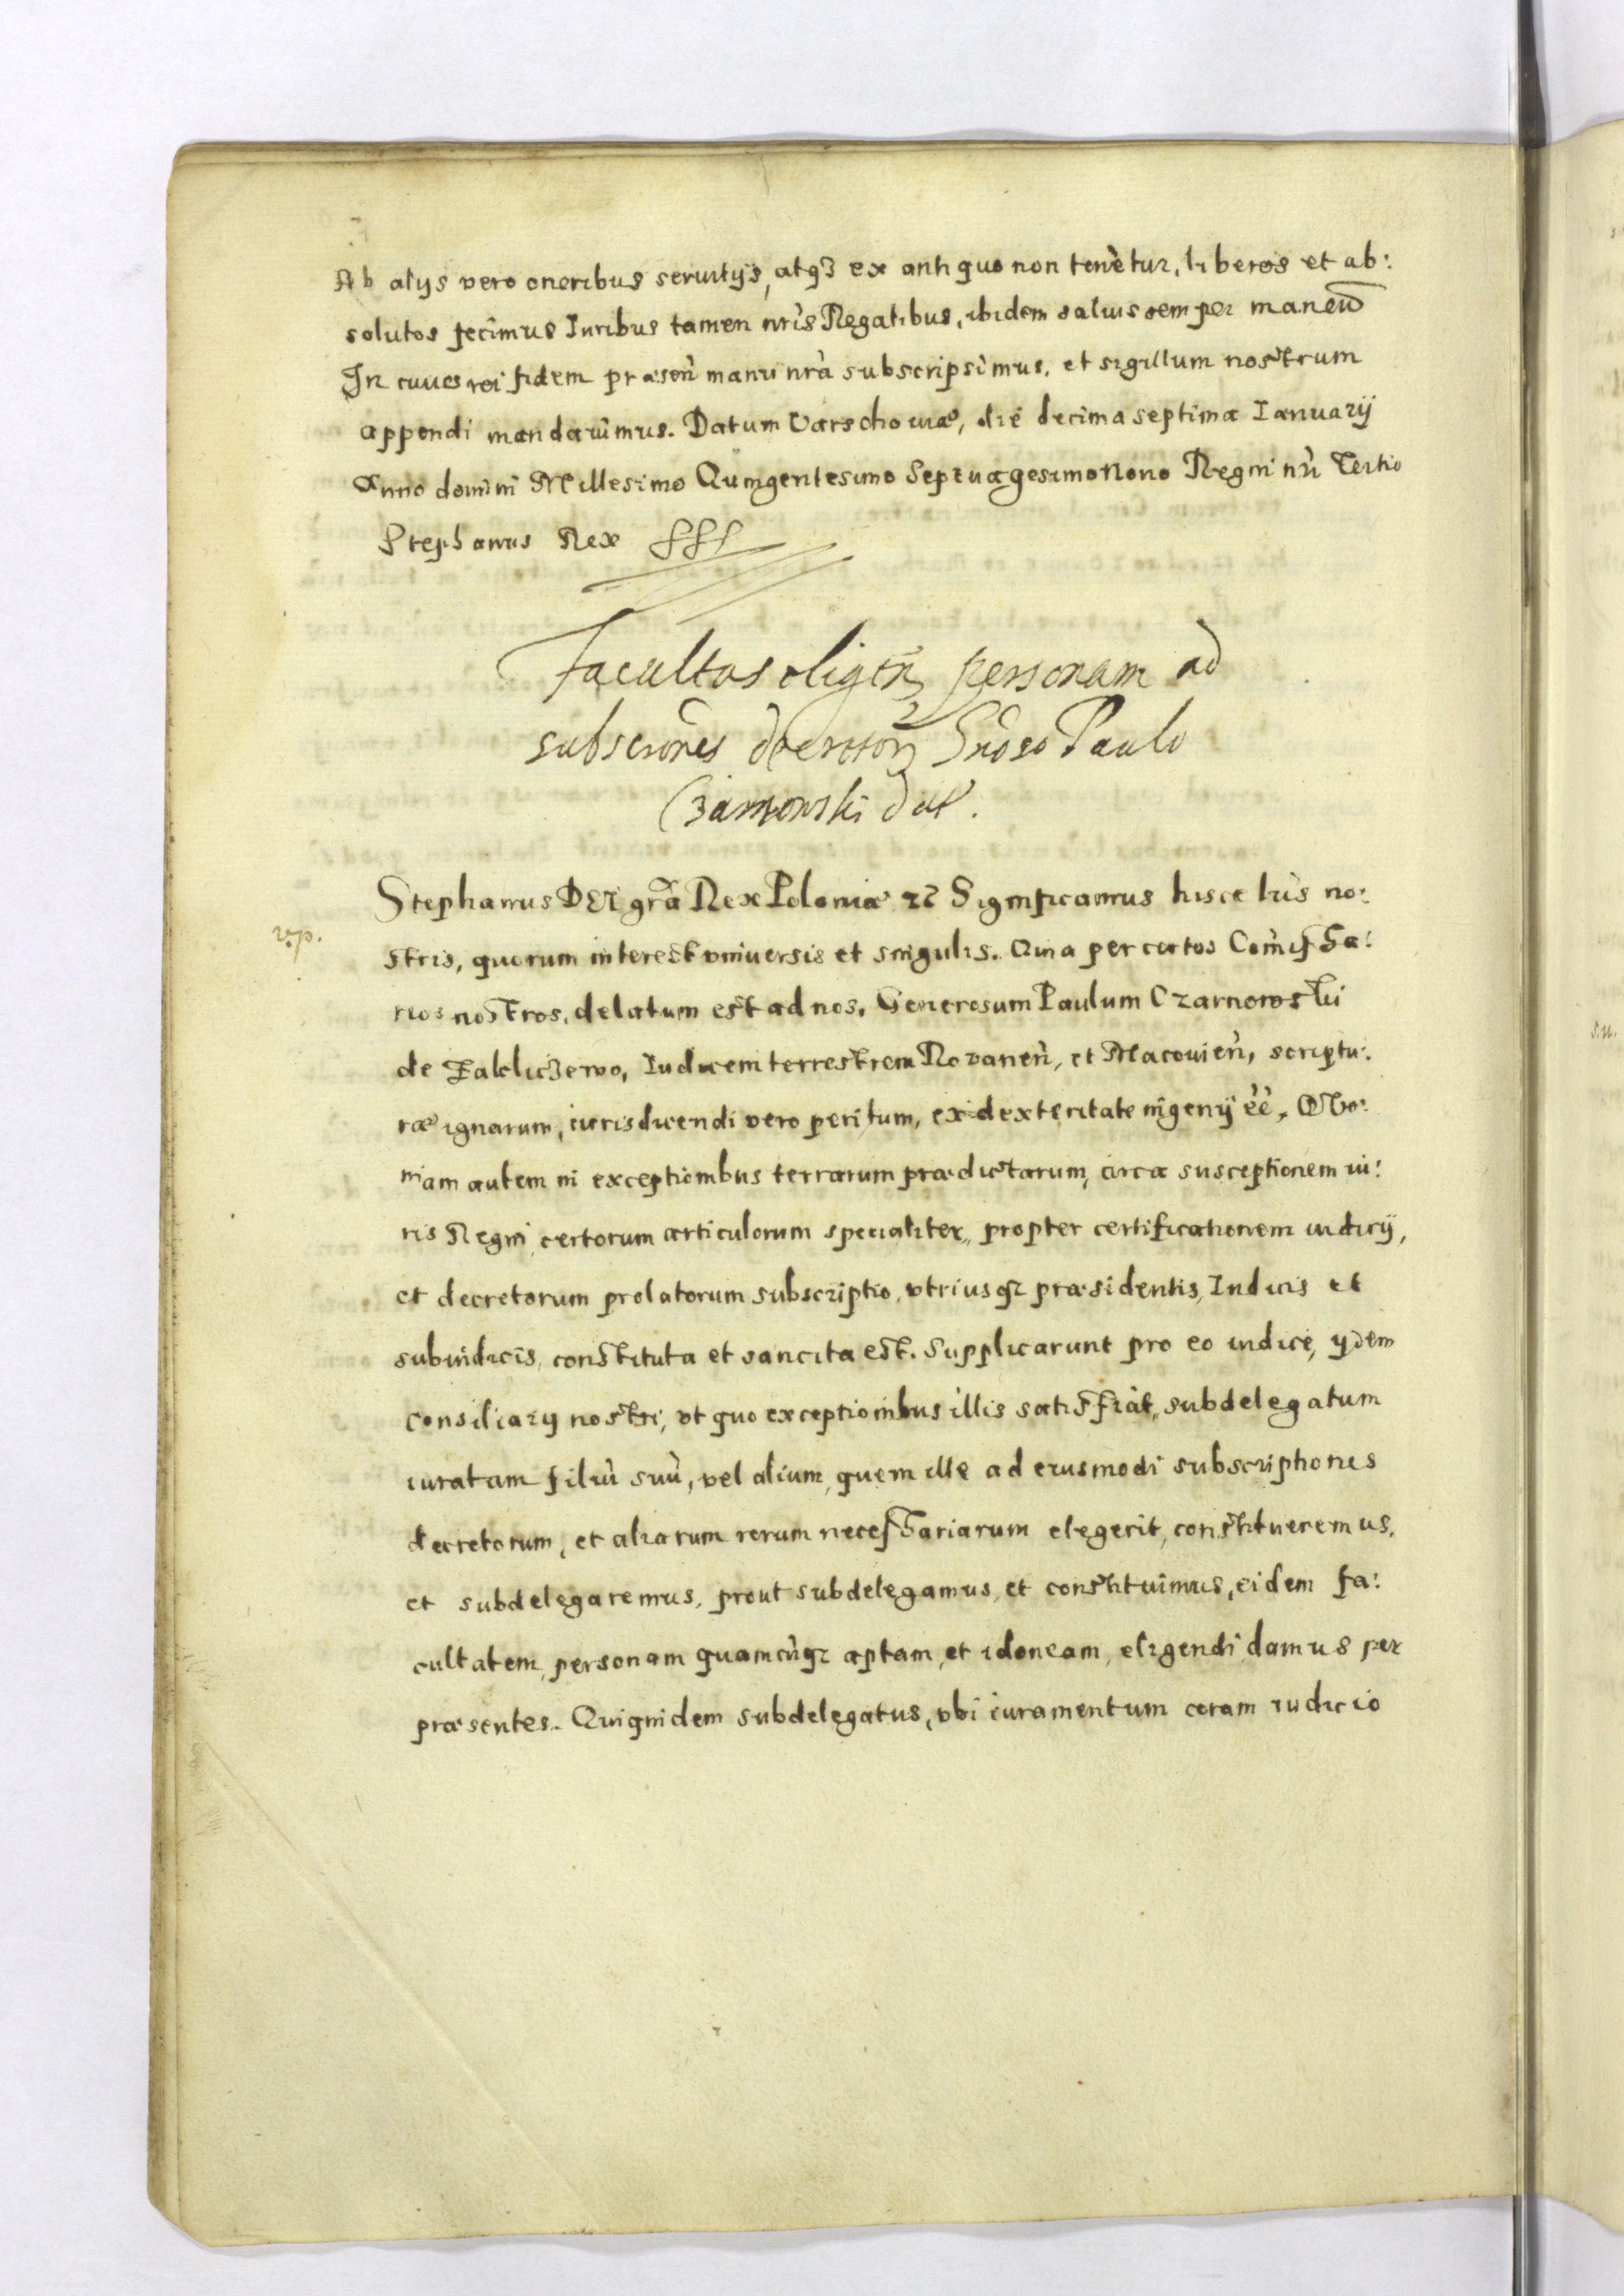 Ab alys vero oneribus seruitijs, atq3 ex antiquo non tenētur, liberos et ab:
solutos fecimus Iuribus tamen nr̄is Regalibus, ibidem saluis semper maneñ
In cuius rei fidem præseñ manu nr̄a subscripsimus, et sigillum nostrum
appendi mandauimus. Datum Varschouiæ, die decima septima Ianuarij
Anno domini Millesimo Quingentesimo Septuagesimo Nono Regni nr̄i Tertio
Stephanus Rex
Facultas eligen personam ad
subscrōnes decretor Gnōso Paulo
Czarnowski dat.
Stephanus DEI gr̄a Rex Poloniæ Significamus hisce lr̄is no:
stris, quorum interest vniuersis et singulis. Quia per certos Com̄issa:
rios nostros, delatum est ad nos, Generosum Paulum Czarnowski
de Iudicem terrestrem Rovaneñ, et Macouieñ, scriptu:
ræ ignarum, iurisdicendi vero peritum, ex dexteritate ingenij ēē, Quo:
niam autem in exceptionibus terrarum prædictarum, circa susceptionem iu:
ris Regni, certorum articulorum specialiter, propter certificationem iudicij,
et decretorum prolatorum subscriptio, vtriusq præsidentis, Iudicis et
subiudicis, constituta et sancita est. Supplicarunt pro eo iudice, ijdem
consiliarij nostri, vt quo exceptionibus illis satisfiat, subdelegatum
iuratam filiū suū, vel alium, quem ille ad eiusmodi subscriptiones
decretorum, et aliarum rerum necessariarum elegerit, constitueremus,
et subdelegaremus, prout subdelegamus, et constituimus, eidem fa:
cultatem, personam quamcūq aptam, et idoneam, eligendi damus per
præsentes. Quiquidem subdelegatus, vbi iuramentum coram iudicio